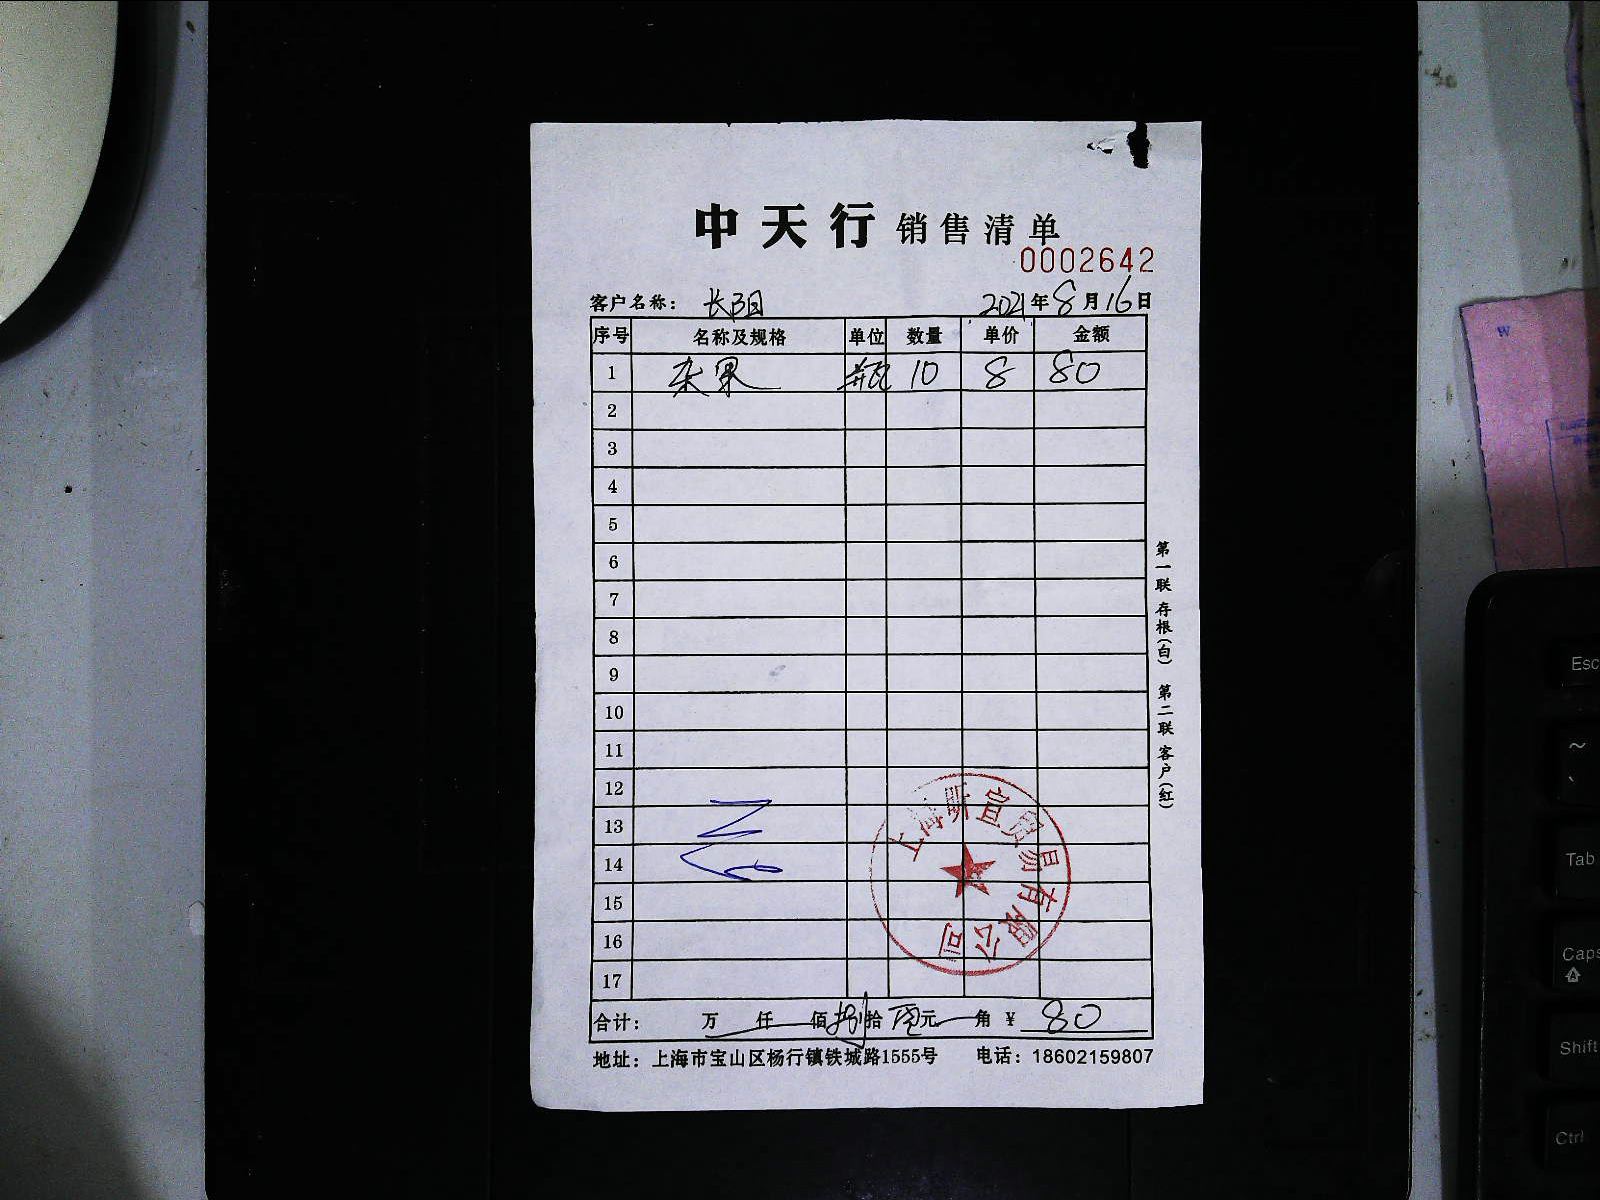 中天行销售清单
0002642
客户名称：长阳 2021年8月16日
序号 名称及规格 单位 数量 单价 金额
1 杂果 瓶 10 8 80
2
3
4
5
6
7
8
9
10
11
12
13
14
15
16
17
上海昕宜贸易有限公司
合计： 万 仟 佰捌拾零元 角 ¥ 80
地址：上海市宝山区杨行镇铁城路1555号 电话：18602159807
第一联 存根（白） 第二联 客户（红）
W
Esc
~
`
Tab
Caps
Shift
Ctrl